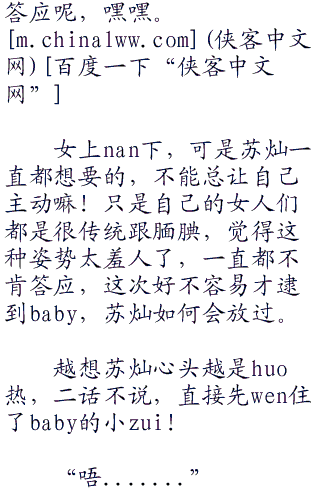 答应呢，嘿嘿。
[m.chinalww.com](侠客中文
网)[百度一下“侠客中文
网”]
女上nan下，可是苏灿一
直都想要的，不能总让自己
主动嘛！只是自己的女人们
都是很传统跟腼腆，觉得这
种姿势太羞人了，一直都不
肯答应，这次好不容易才逮
到baby，苏灿如何会放过。
越想苏灿心头越是huo
热，二话不说，直接先wen住
了baby的小zui！
“唔.......”